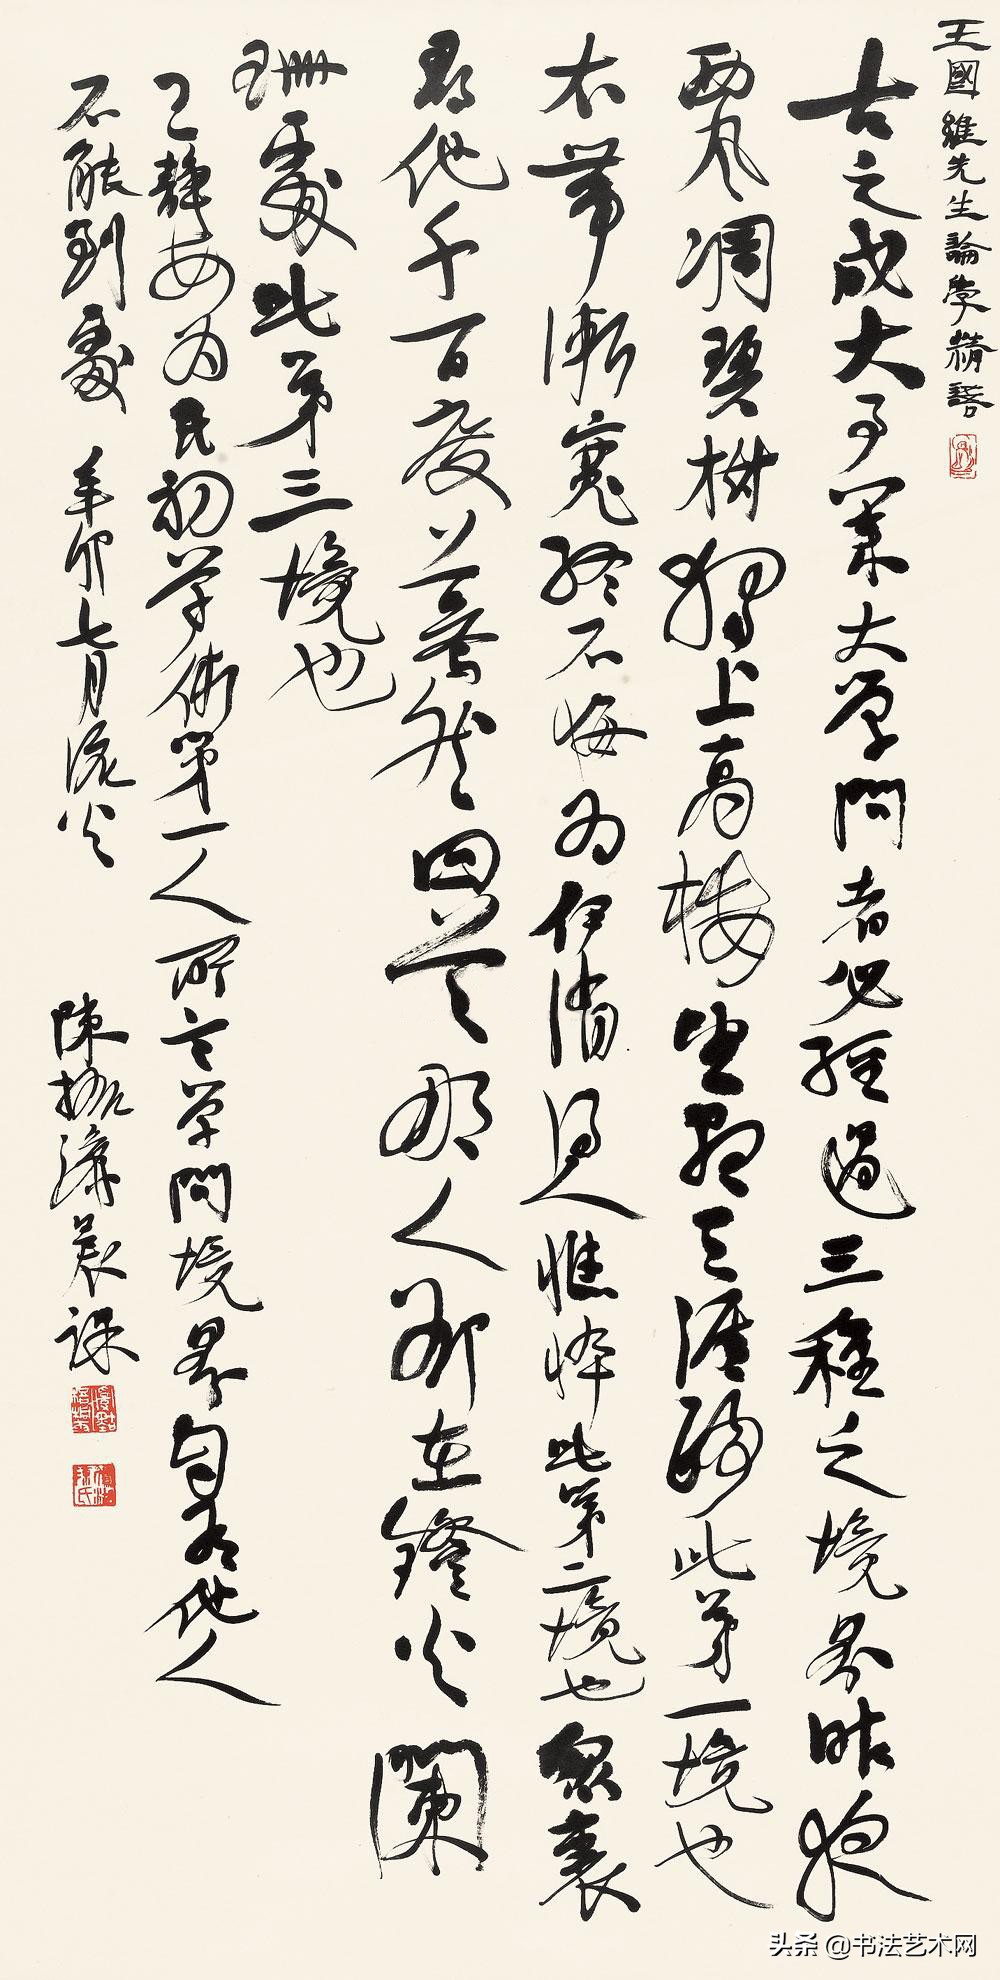 王國維先生論學精語
古之成大事業大學問者必經過三種之境界昨夜
西風凋碧樹獨上高樓望盡天涯路此第一境也
衣帶漸寬終不悔為伊消得人憔悴此第二境也眾裏
尋他千百度驀然回首那人卻在鐙火闌
珊處此第三境也
王靜安为民初學術第一人所言學問境界自有他人
不能到處 辛卯七月流火 陳振濂晨課
头条 @书法艺术网